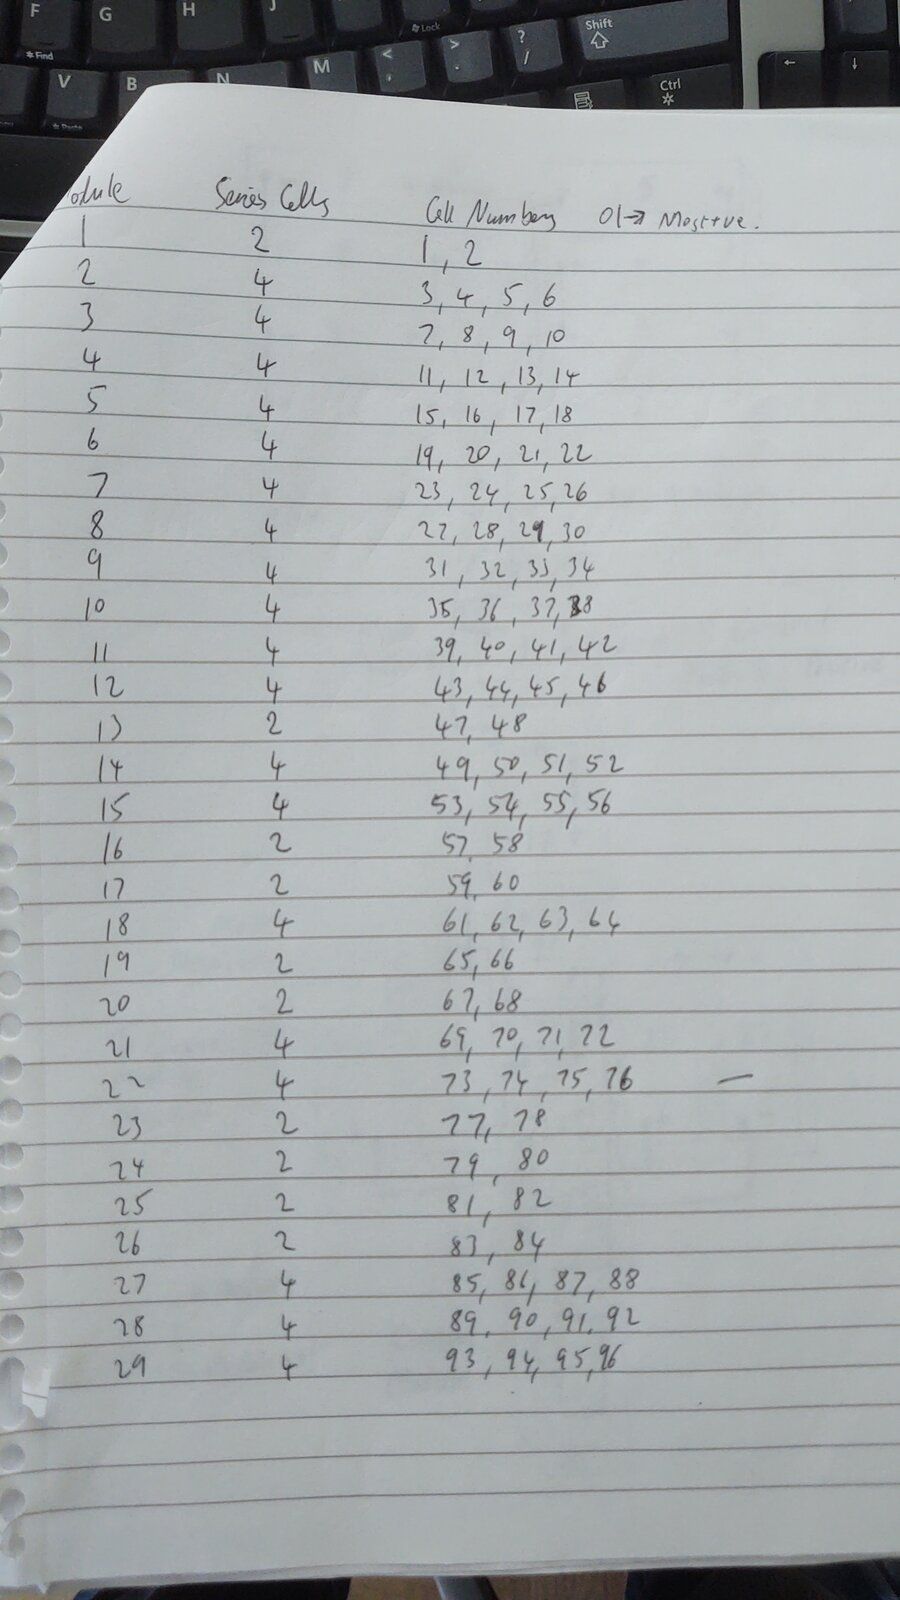 F G H J
*Find Lock Shift
V B N M < , > . ? / Ctrl
*Paste
odule Series Cells Cell Numbers 01→ Most +ve.
1 2 1, 2
2 4 3, 4, 5, 6
3 4 7, 8, 9, 10
4 4 11, 12, 13, 14
5 4 15, 16, 17, 18
6 4 19, 20, 21, 22
7 4 23, 24, 25, 26
8 4 27, 28, 29, 30
9 4 31, 32, 33, 34
10 4 35, 36, 37, 38
11 4 39, 40, 41, 42
12 4 43, 44, 45, 46
13 2 47, 48
14 4 49, 50, 51, 52
15 4 53, 54, 55, 56
16 2 57, 58
17 2 59, 60
18 4 61, 62, 63, 64
19 2 65, 66
20 2 67, 68
21 4 69, 70, 71, 72
22 4 73, 74, 75, 76 —
23 2 77, 78
24 2 79, 80
25 2 81, 82
26 2 83, 84
27 4 85, 86, 87, 88
28 4 89, 90, 91, 92
29 4 93, 94, 95, 96